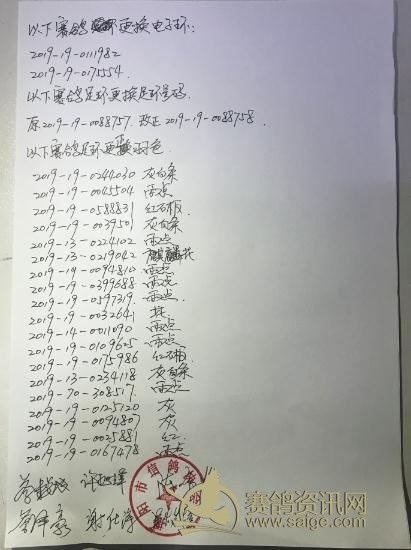 以下赛鸽更换电子环:
2019-19-0111982
2019-19-0175554.
以下赛鸽足环更换足环号码.
原2019-19-0088757. 改正2019-19-0088758.
以下赛鸽足环更换羽色.
2019-19-0244030 灰白条
2019-19-0045504 雨点
2019-19-0588831 红石板.
2019-19-0039501 灰白条
2019-13-0224102 雨点
2019-13-0219042 麒麟花
2019-19-0094810 雨点
2019-19-0399688 雨点
2019-19-0597319. 雨点.
2019-19-0032641 花
2019-14-0011090 雨点
2019-19-0109625 雨点
2019-19-0175986 红石板
2019-13-0234118 灰白条
2019-70-308517. 雨点
2019-19-0125120 灰
2019-19-0094807 灰
2019-19-0025881 红.
2019-19-0167478 雨点
市信鸽
赛鸽资讯网
www.saigc.com